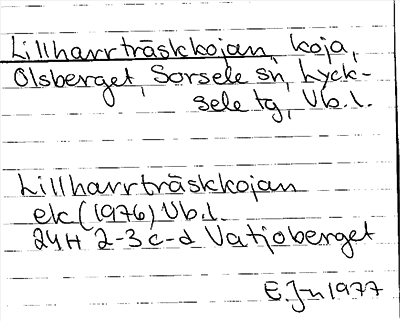 Lillharrträskkojan, koja,
Olsberget, Sorsele sn, Lyck-
sele tg, Vb.l.
Lillharrträskkojan
ek (1976) Vb.l.
24H 2-3 c-d Vatjoberget
E.Jn 1977